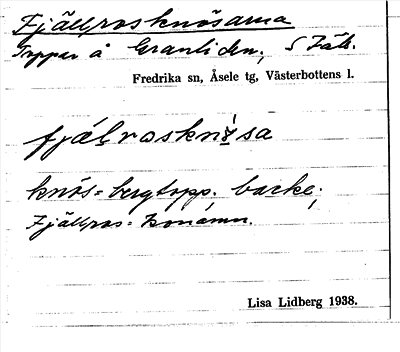 Fjällrosknösarna
Toppar å Granliden, S Fäb.
Fredrika sn, Åsele tg, Västerbottens l.
fjäḷrosknösa
knös = bergtopp. backe;
Fjällros- = könamn.
Lisa Lidberg 1938.